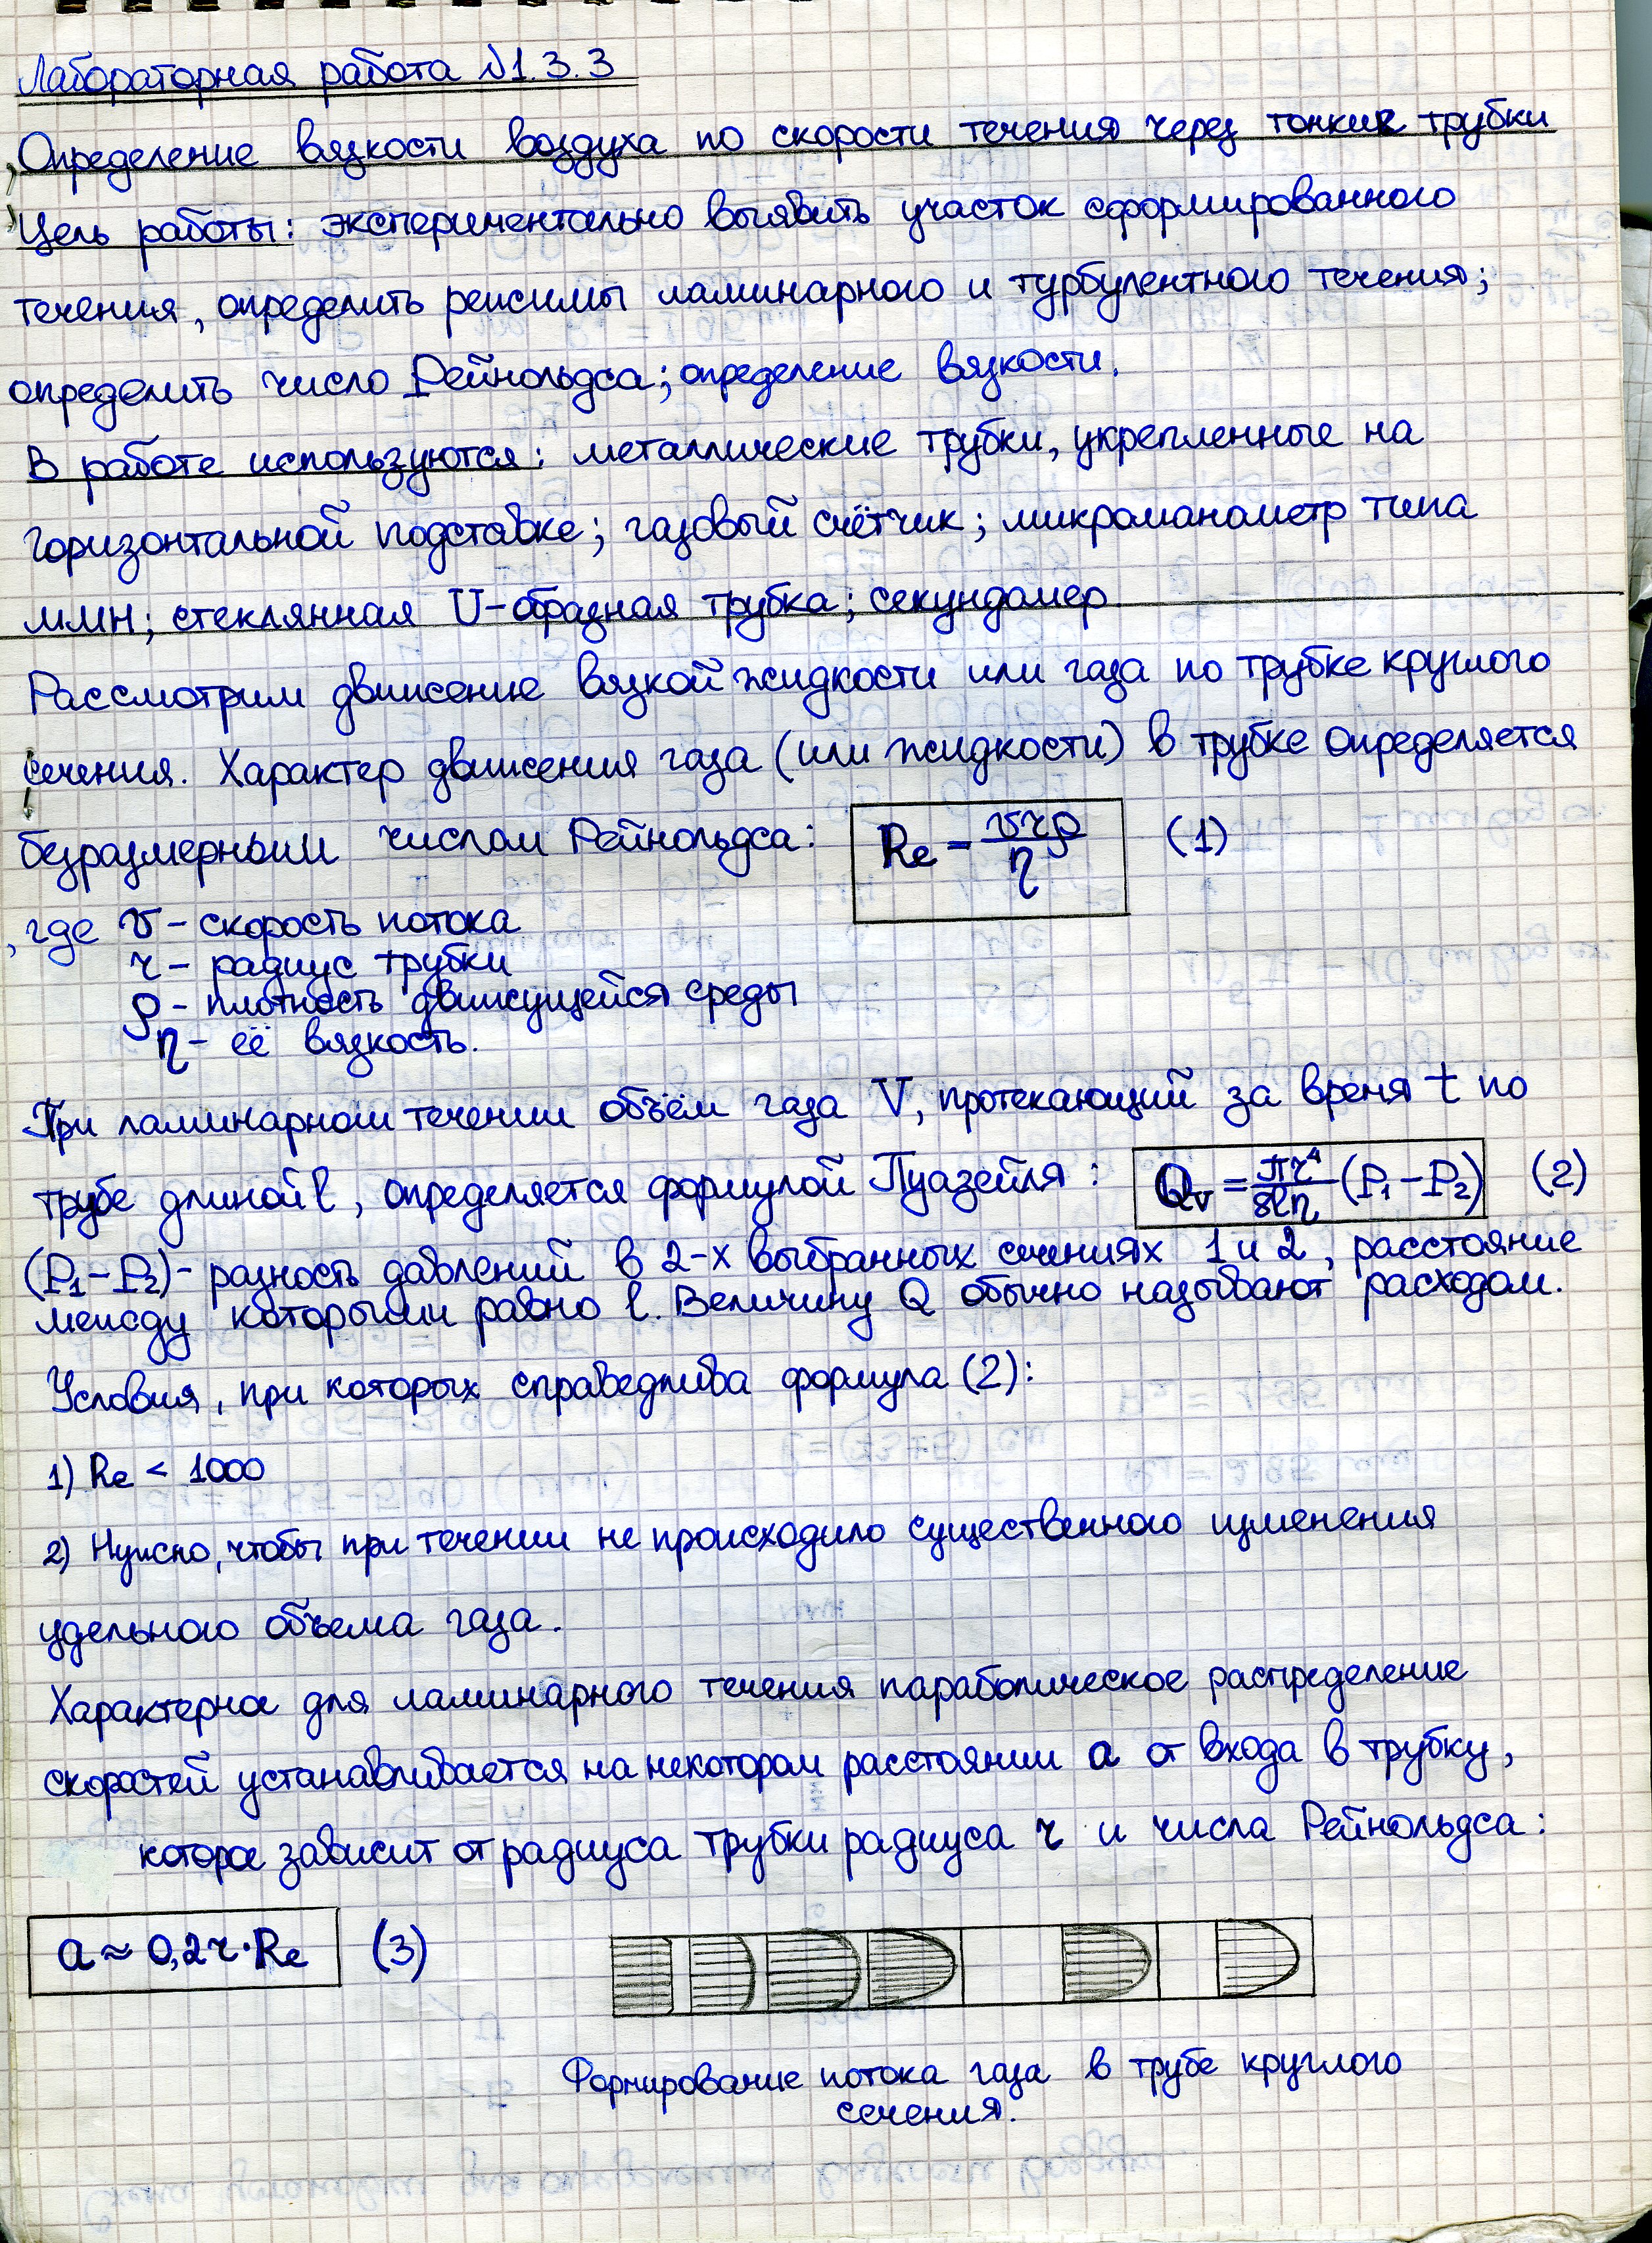 Лабораторная работа №1.3.3
Определение вязкости воздуха по скорости течения через тонкие трубки
Цель работы: экспериментально выявить участок сформированного
течения, определить режимы ламинарного и турбулентного течения;
определить число Рейнольдса; определение вязкости.
В работе используются: металлические трубки, укрепленные на
горизонтальной подставке; газовый счётчик; микроманометр типа
ММН; стеклянная U-образная трубка; секундомер.
Рассмотрим движение вязкой жидкости или газа по трубке круглого
сечения. Характер движения газа (или жидкости) в трубке определяется
безразмерным числом Рейнольдса: Re = vrρ/η (1)
, где v - скорость потока
r - радиус трубки
ρ - плотность движущейся среды
η - её вязкость.
При ламинарном течении объём газа V, протекающий за время t по
трубе длиной l, определяется формулой Пуазейля: Qv = πr⁴/8lη (P₁-P₂) (2)
(P₁-P₂) - разность давлений в 2-х выбранных сечениях 1 и 2, расстояние
между которыми равно l. Величину Q обычно называют расходом.
Условия, при которых справедлива формула (2):
1) Re < 1000
2) Нужно, чтобы при течении не происходило существенного изменения
удельного объема газа.
Характерное для ламинарного течения параболическое распределение
скоростей устанавливается на некотором расстоянии a от входа в трубку,
которое зависит от радиуса трубки радиуса r и числа Рейнольдса:
a ≈ 0,2r·Re (3)
Формирование потока газа в трубе круглого
сечения.